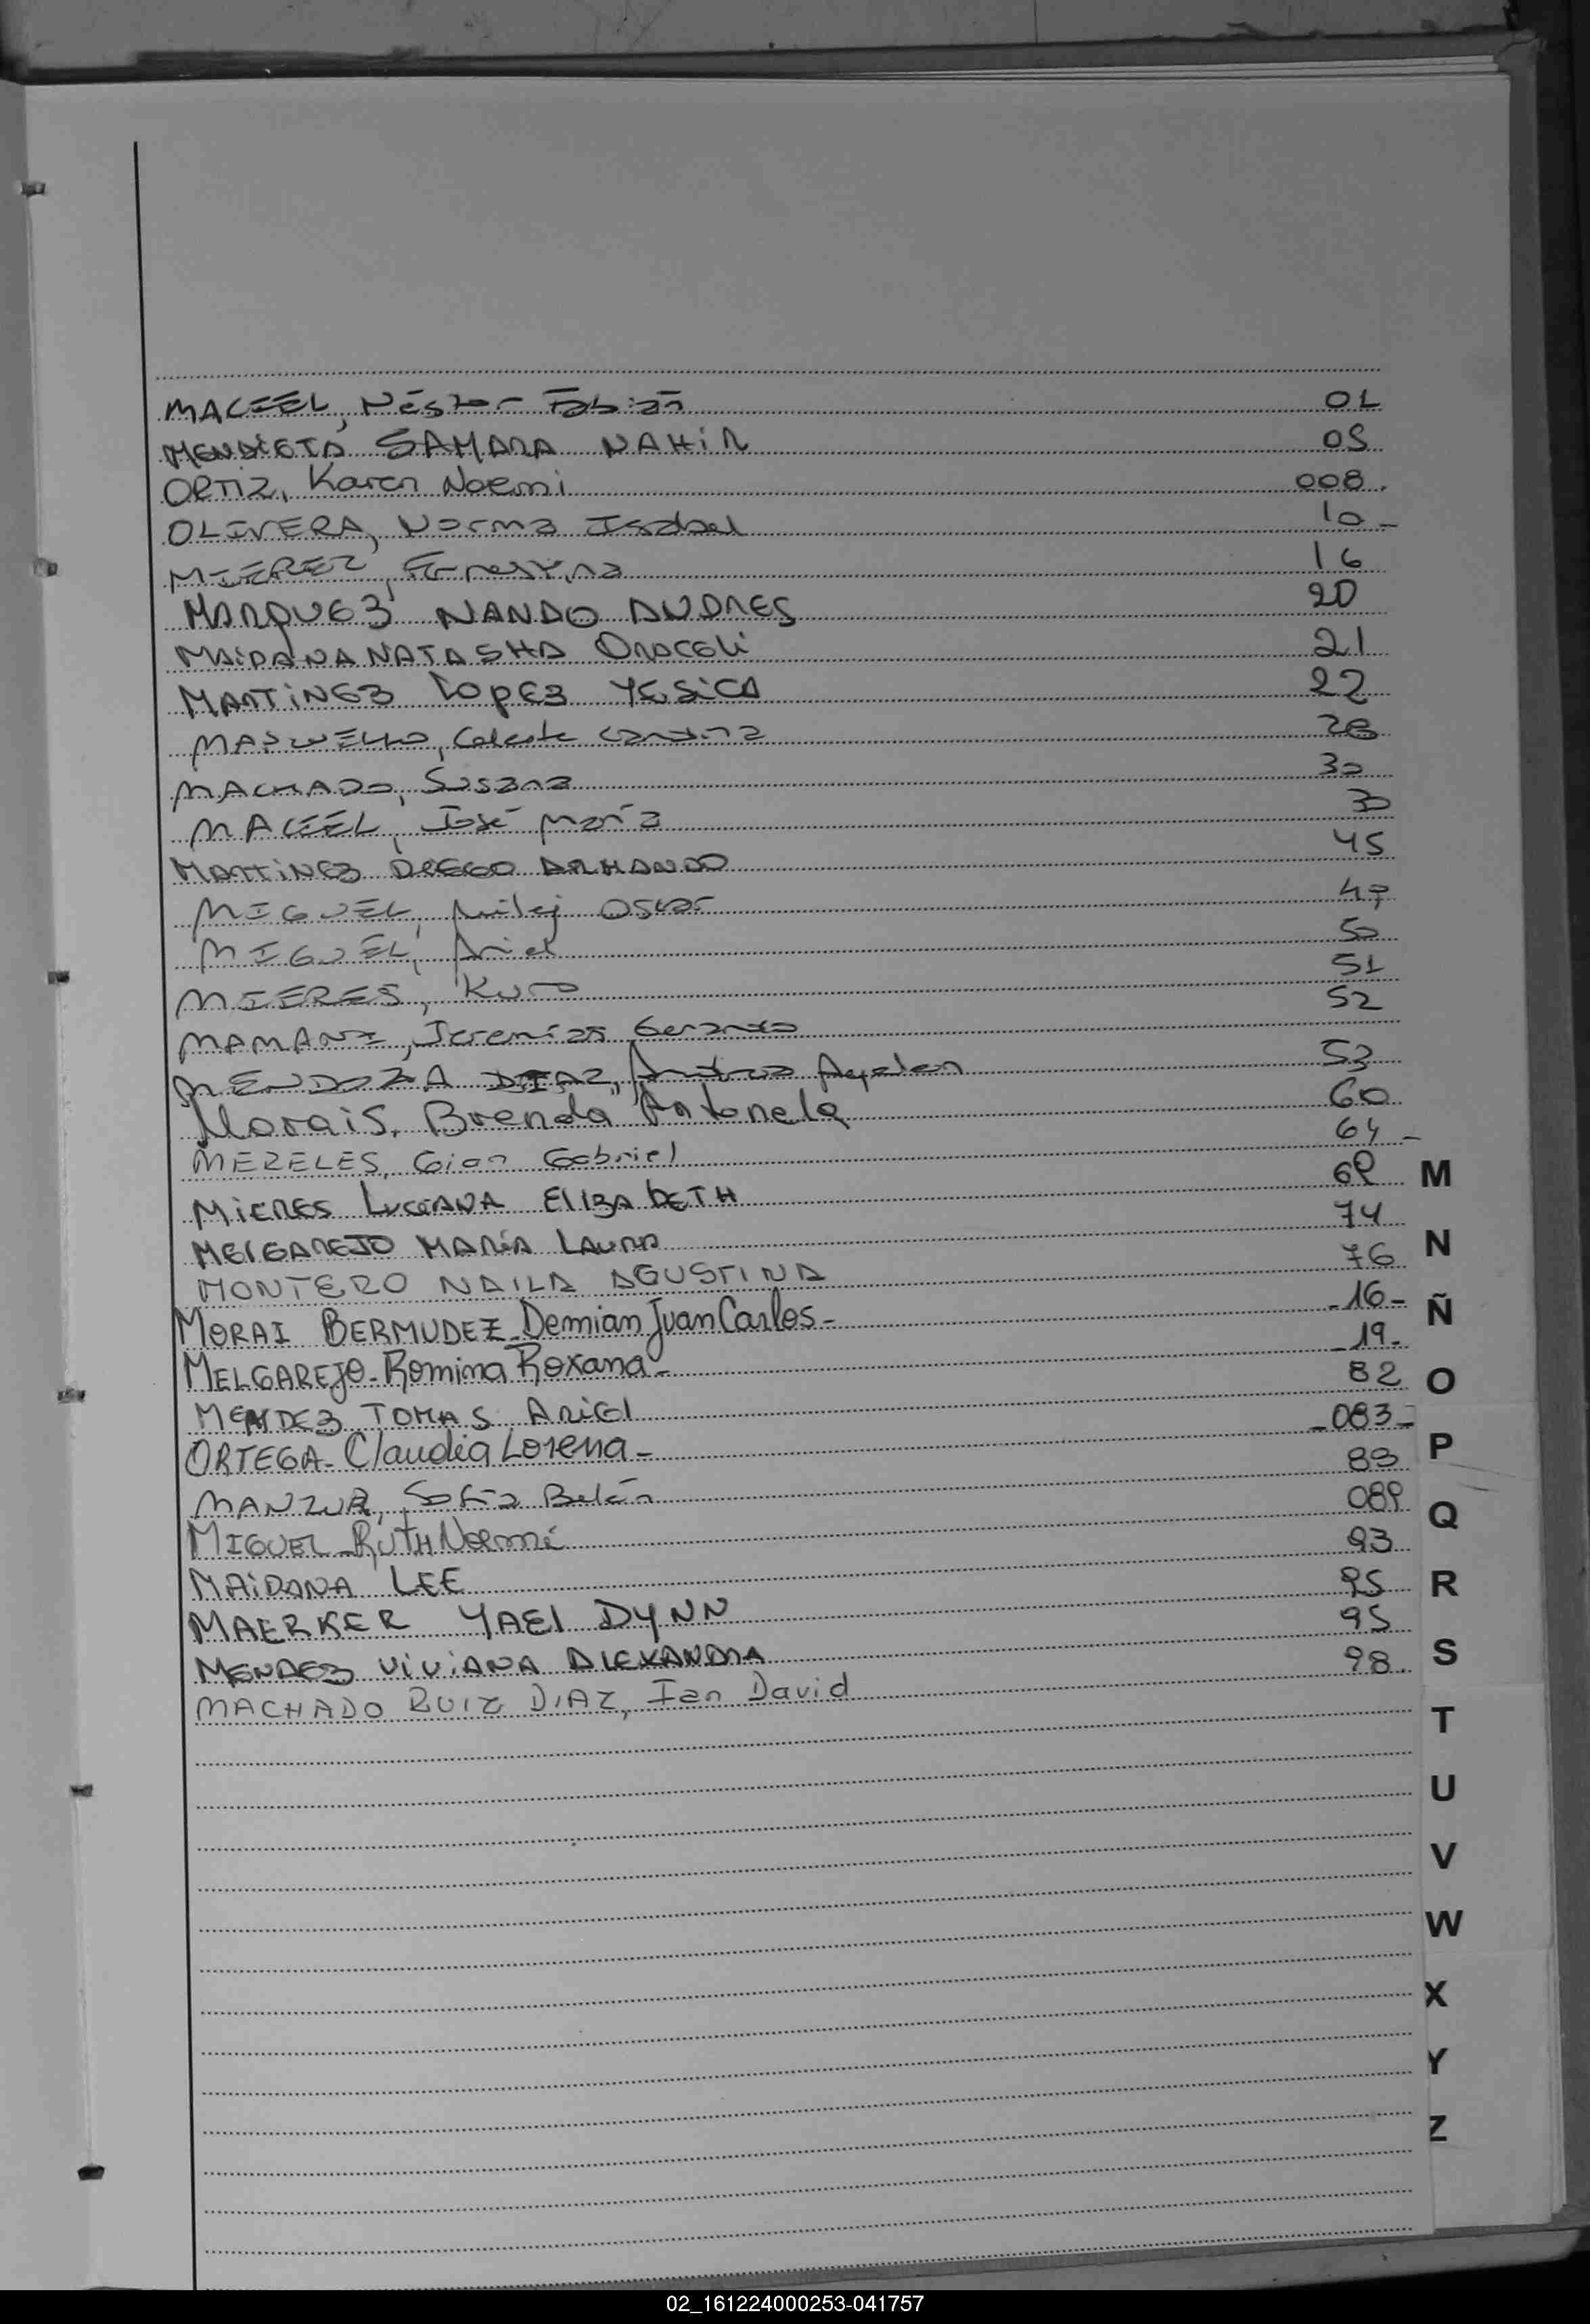 MACIEL, Néstor Fabián 01
MENDIETA SAMARA NAHIR 05
ORTIZ, Karen Noemi 008.
OLIVERA, Norma Isabel 10-
MIEREZ, Ernestina 16
MARQUEZ NANDO ANDRES 20
MAIDANA NATASHA ARACELI 21
MARTINEZ LOPEZ YESICA 22
Celeste 28
MACHADO, Susana 30
MACIEL, José María 30
MARTINEZ DIEGO ARMANDO 45
MIGUEL, Oscar 47
MIGUEL, Ariel 50
MIERES, 51
MAMANI, Jeremías Gerardo 52
MENDOZA DIAZ, Ayelen 53
Morais, Brenda Antonela 60
MERELES, Gian Gabriel 64-
MIERES LUCIANA ELIZABETH 69
MELGAREJO MARÍA LAURA 74
MONTERO NAILA AGUSTINA 76
MORAI BERMUDEZ-Demian Juan Carlos- -16-
MELGAREJO-Romina Roxana- -19-
MENDEZ TOMAS ARIEL 82
ORTEGA-Claudia Lorena- -083-
MANZUR, Sofía Belén 89
MIGUEL-RUTH Noemí 089
MAIDANA LEE 93
MAERKER YAEL DYNN 95
MENDEZ VIVIANA ALEXANDRA 95
MACHADO RUIZ DIAZ, Ian David 98.
M
N
Ñ
O
P
Q
R
S
T
U
V
W
X
Y
Z
02_161224000253-041757